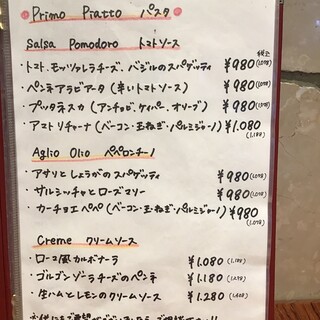 • Primo Piatto パスタ
Salsa Pomodoro トマトソース
税込
・トマト、モッツァレラチーズ、バジルのスパゲッティ ¥980(1,078)
・ペンネアラビアータ(辛いトマトソース) ¥980(1,078)
・プッタネスカ(アンチョビ、ケイパー、オリーブ) ¥980(1,078)
・アマトリチャーナ(ベーコン・玉ねぎ・パルミジャーノ) ¥1.080(1,188)
Aglio Olio ペペロンチーノ
・アサリとしょうがのスパゲッティ ¥980(1,078)
・サルシッチャとローズマリー ¥980(1,078)
・カーチョエペペ(ベーコン・玉ねぎ・パルミジャーノ) ¥980(1,078)
Creme クリームソース
・ローマ風カルボナーラ ¥1.080(1,188)
・ゴルゴンゾーラチーズのペンネ ¥1.180(1,298)
・生ハムとレモンのクリームソース ¥1.280(1,408)